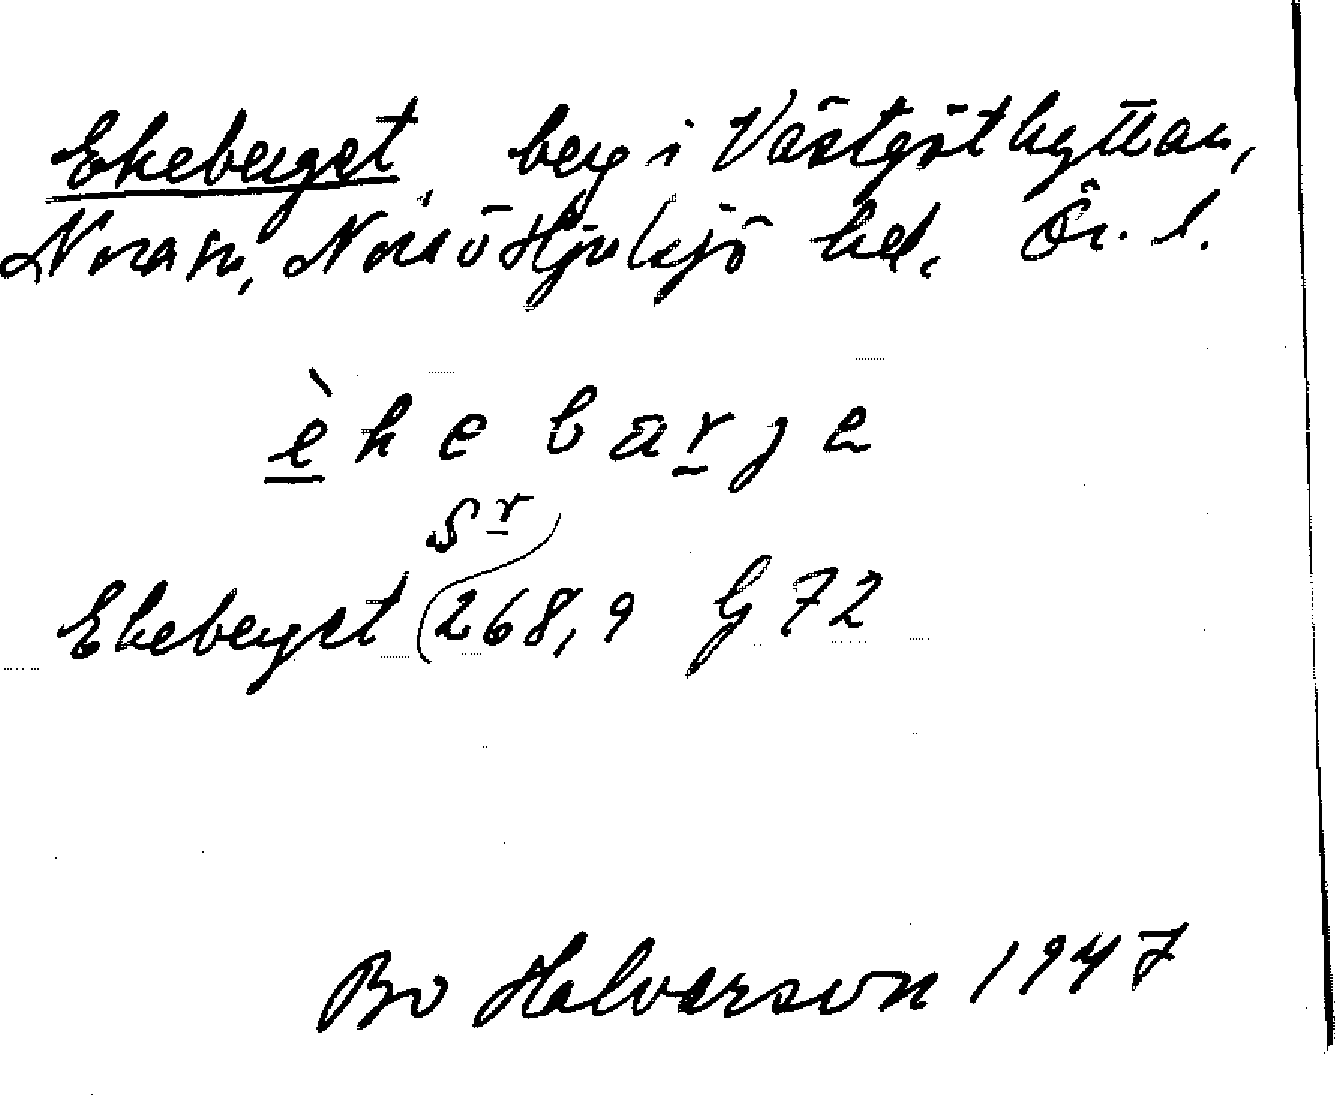 Ekeberget, berg i Västgöthyttan,
Nora sn, Nora o Hjulsjö hd, Ör. l.
èkebarje
Sr
Ekeberget (268,9 G 72
Bo Halvarson 1947